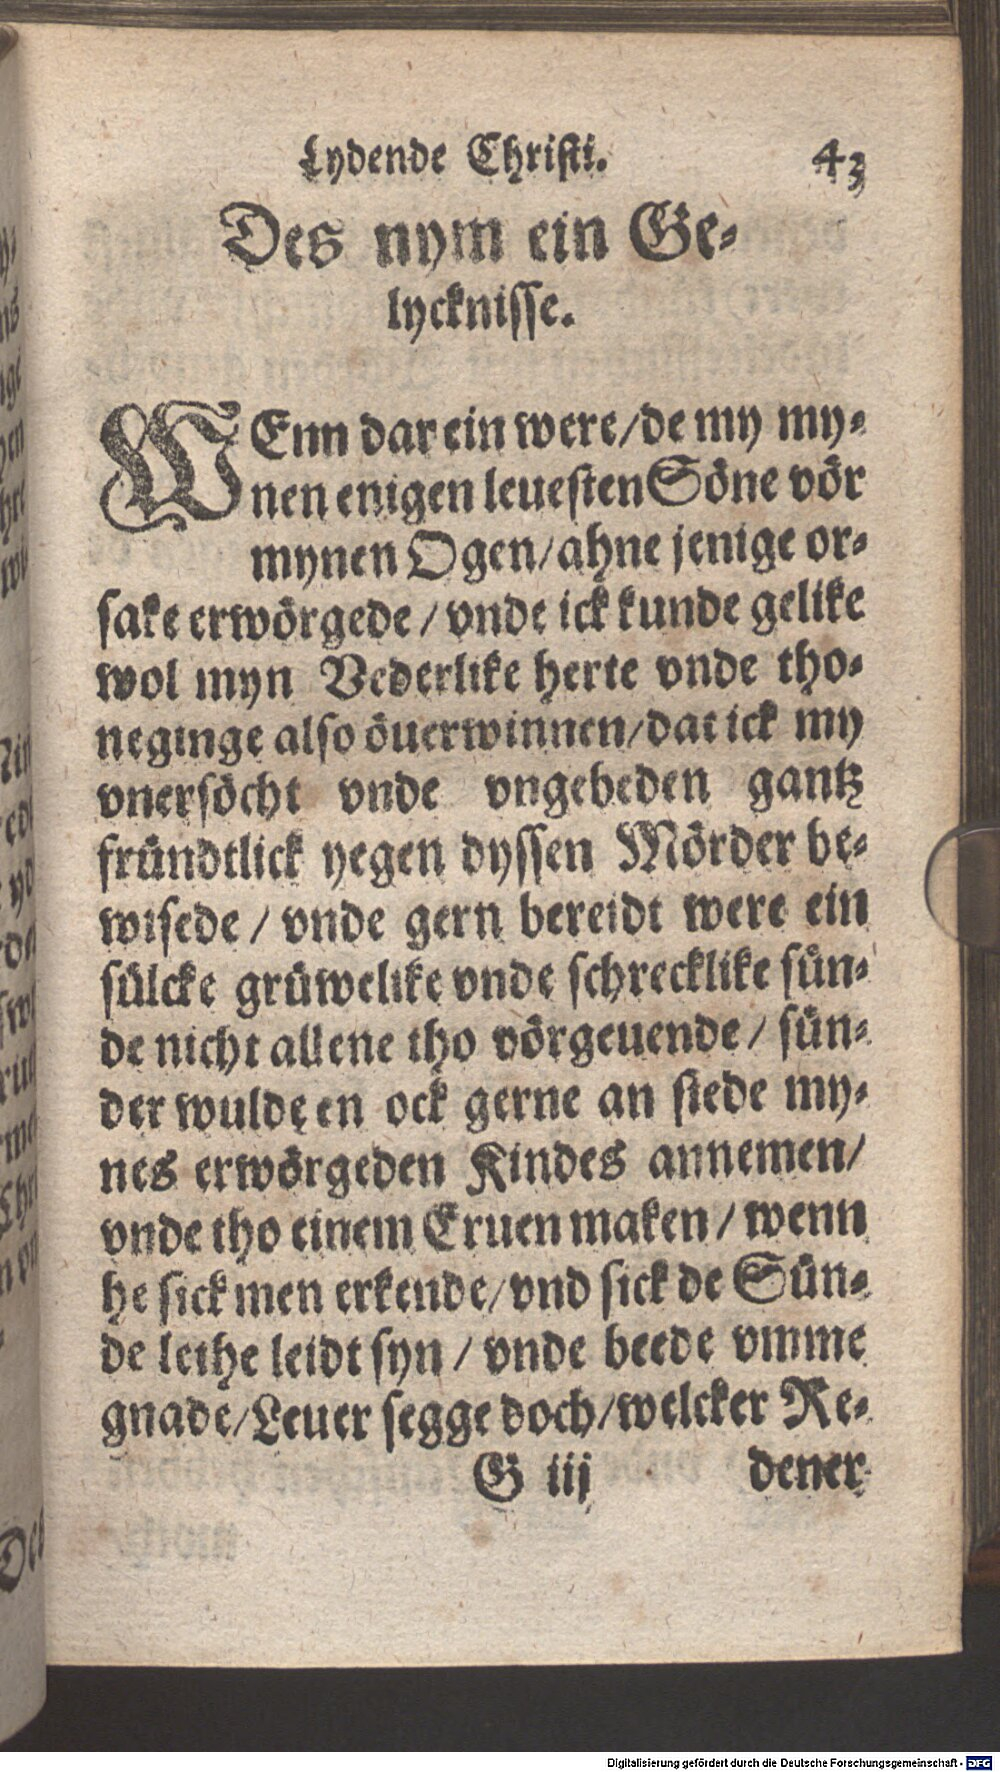 Lydende Christi. 43
Des nym ein Ge-
lycknisse.
WEnn dar ein were/de my my-
nen enigen leuesten Söne vör
mynen Ogen/ahne jenige or-
sake erwörgede/vnde ick kunde gelike
wol myn Vederlike herte vnde tho-
neginge also öuerwinnen/dat ick my
vnersöcht vnde vngebeden gantz
fründtlick yegen dyssen Mörder be-
wisede/vnde gern bereidt were ein
sülcke grüwelike vnde schrecklike sün-
de nicht allene tho vörgeuende/sün-
der wulde en ock gerne an stede my-
nes erwörgeden Kindes annemen/
vnde tho einem Eruen maken/wenn
he sick men erkende/vnd sick de Sün-
de lethe leidt syn/vnde beede vmme
gnade/Leuer segge doch/welcker Re-
G iij dener
Digitalisierung gefördert durch die Deutsche Forschungsgemeinschaft - DFG